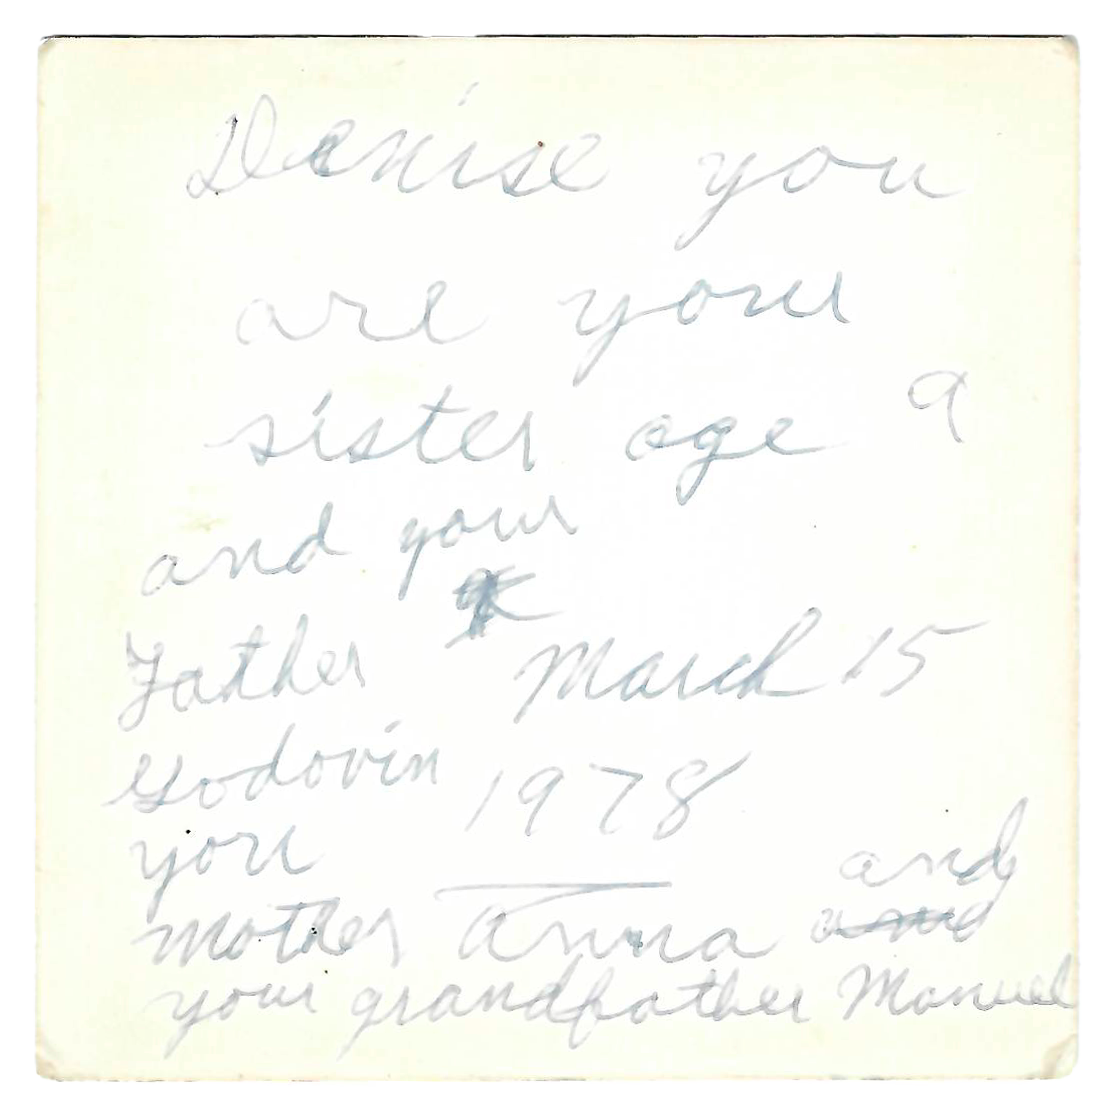 Denise you
are your
sister age 9
and your
Father March 15
Godovin 1978
you
mother Anna and
your grandfather Manuel